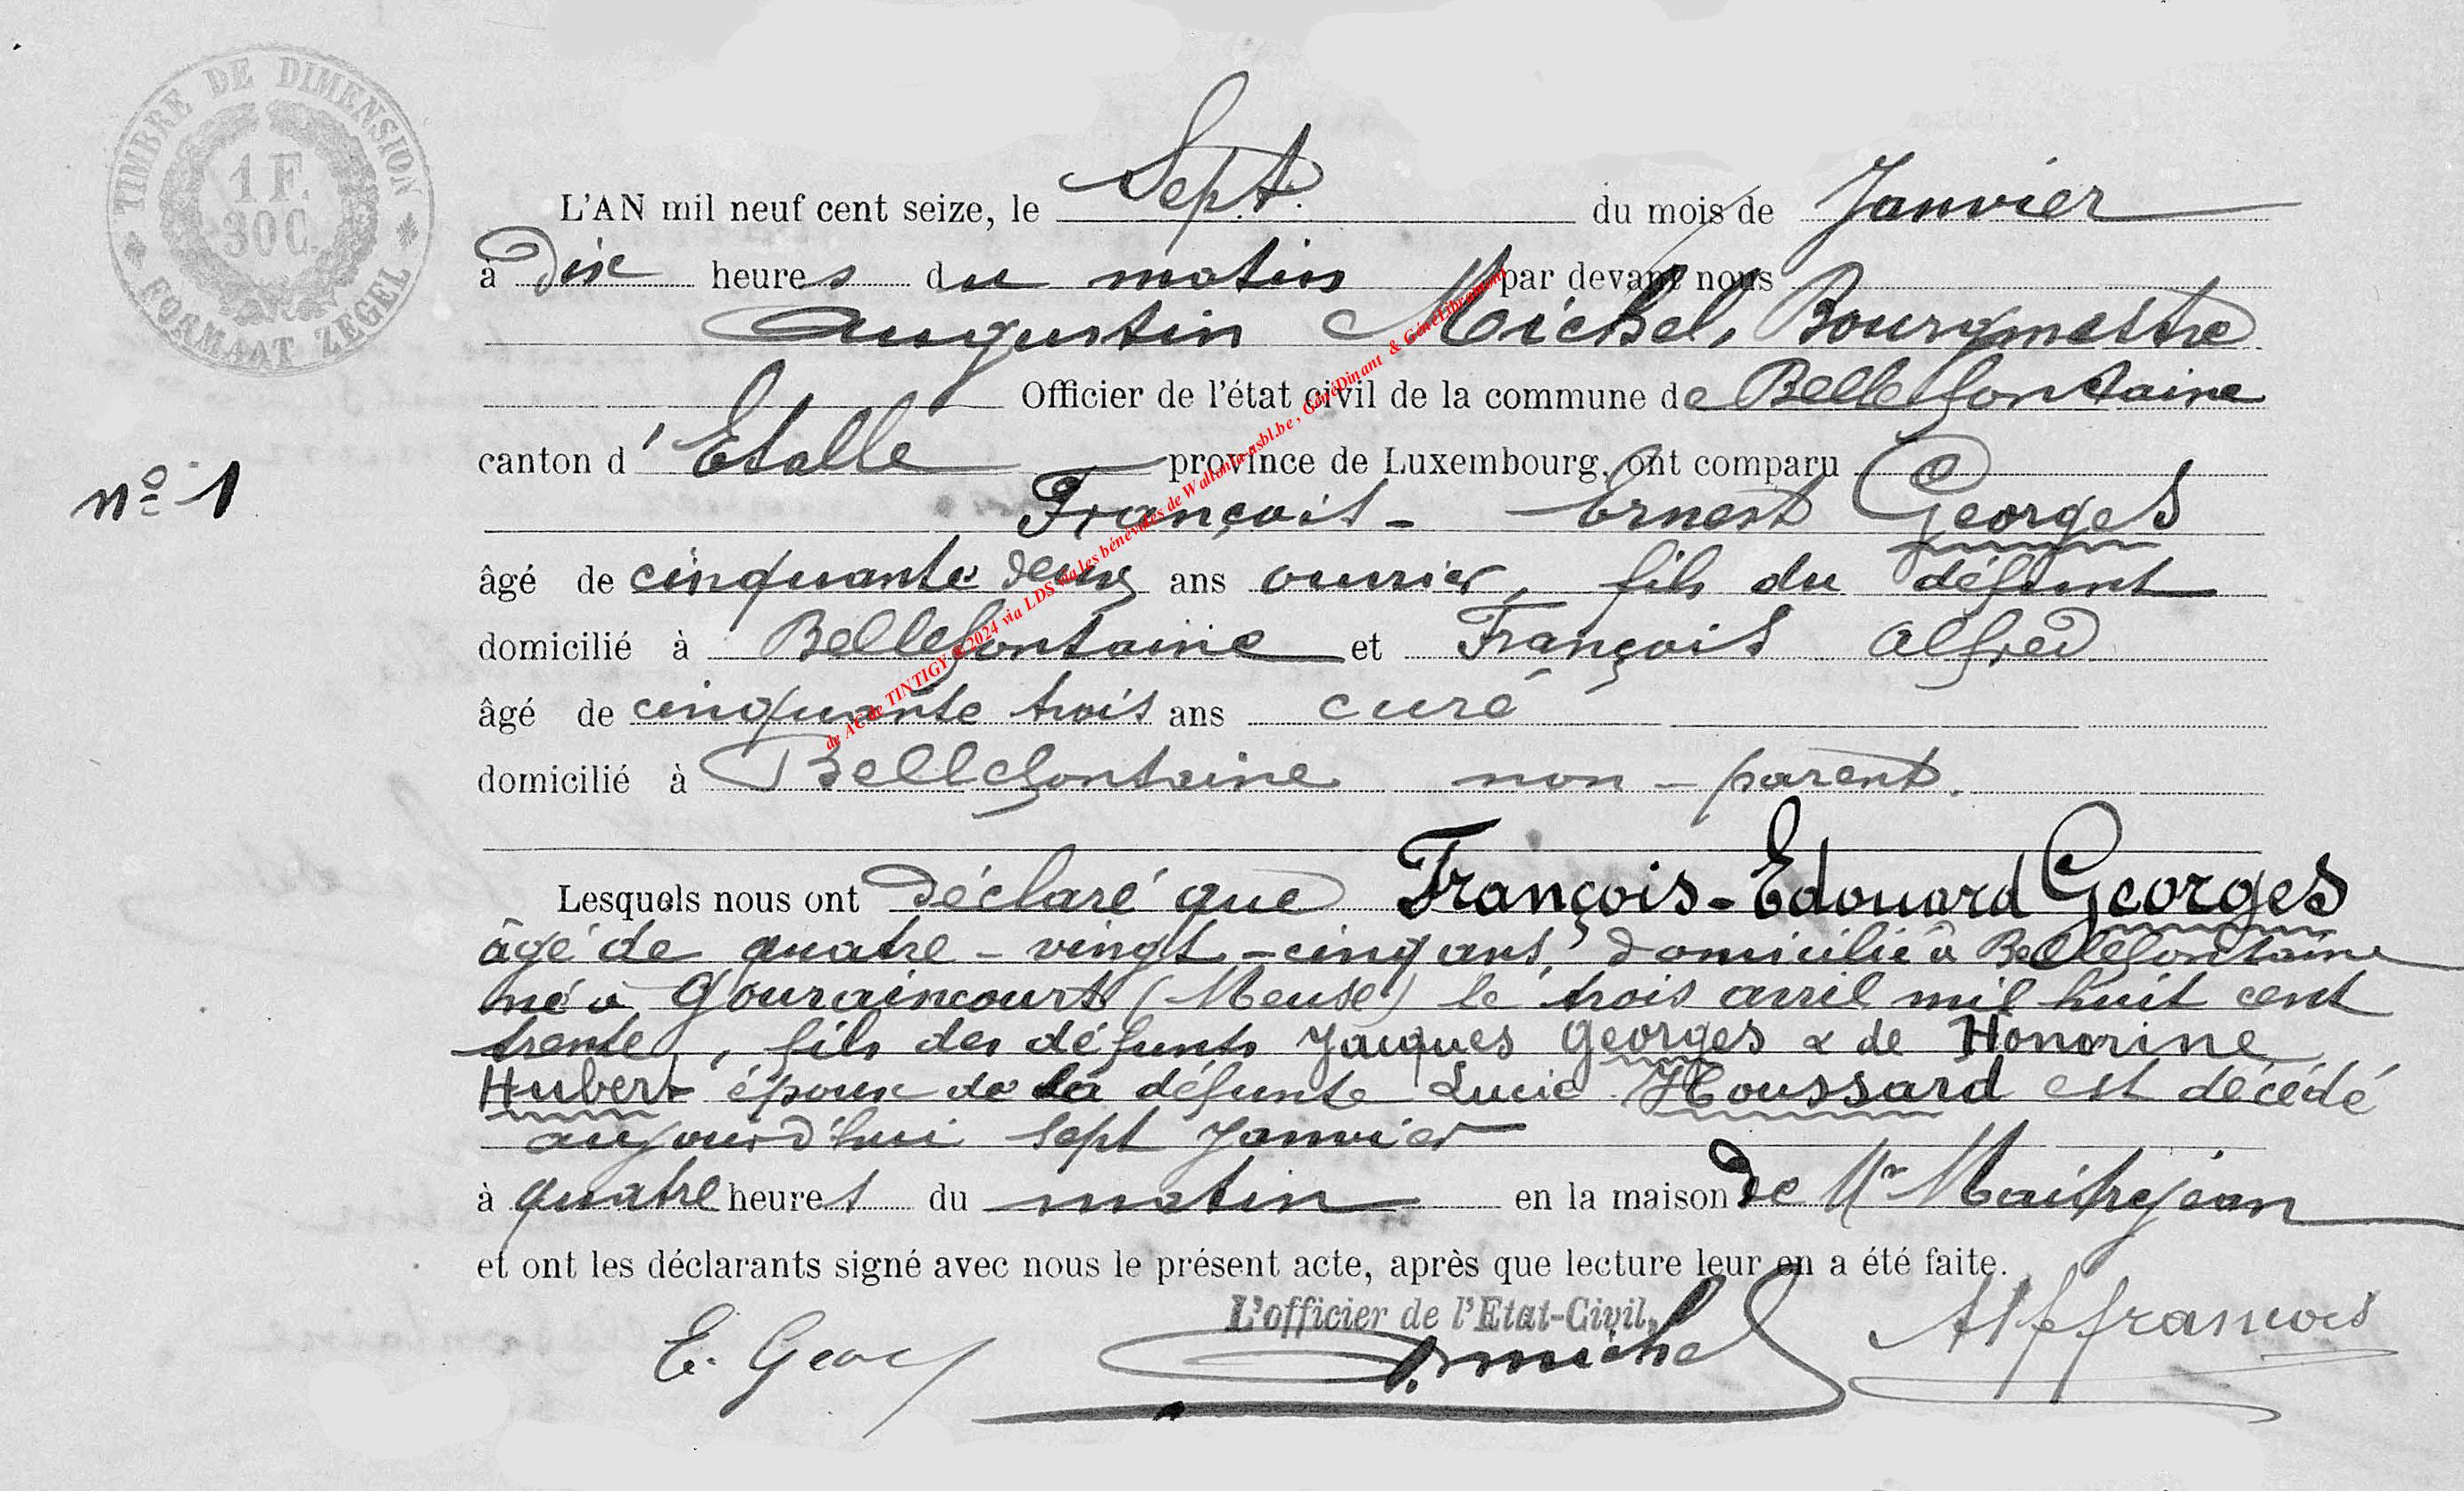 TIMBRE DE DIMENSION
1 F.
30 C.
FORMAAT ZEGEL
L'AN mil neuf cent seize, le Sept du mois de Janvier
à dix heures du matin par devant nous
Augustin Michel, Bourgmestre
Officier de l'état civil de la commune de Bellefontaine
canton d'Etalle province de Luxembourg, ont comparu
nº 1
François-Ernest Georges
âgé de cinquante deux ans ouvrier, fils du défunt
domicilié à Bellefontaine et François Alfred
âgé de cinquante trois ans curé
domicilié à Bellefontaine non-parent.
Lesquels nous ont déclaré que François-Edouard Georges
âgé de quatre-vingt-cinq ans, domicilié à Bellefontaine
né à Gouraincourt (Meuse) le trois avril mil huit cent
trente, fils des défunts Jacques Georges & de Honorine
Hubert époux de la défunte Lucie Houssard est décédé
aujourd'hui sept Janvier
à quatre heures du matin en la maison de Mr Maitrejean
et ont les déclarants signé avec nous le présent acte, après que lecture leur en a été faite.
L'officier de l'Etat-Civil,
E. Georges A. Michel Alf françois
de AC de TINTIGY © 2024 via LDS via les bénévoles de Wallonia-asbl.be, GénéDinant & GénéLibramont